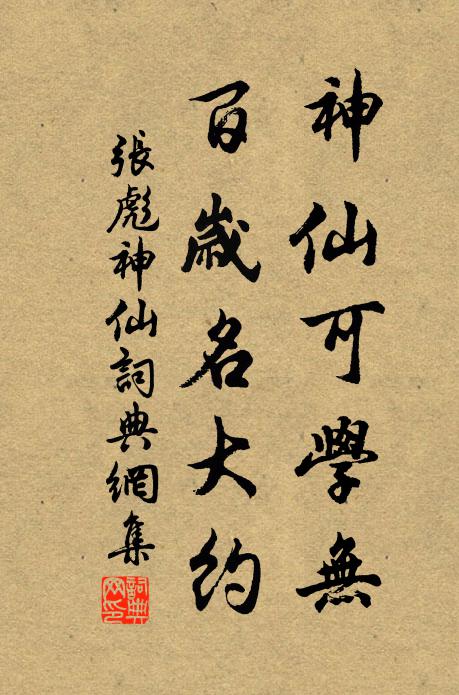 神仙可學無
百歲名大約
張彪神仙詞典網集
詞典网印